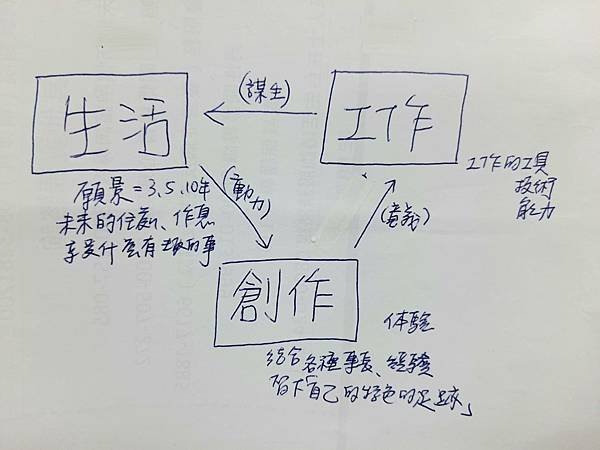 (謀生)
生活
工作
工作的工具
技術
能力
願景=3、5、10年
未來的住處、作息
享受什麼有趣的事
(動力)
(意義)
創作
体驗
結合各種專長、經驗
留下「自己的特色的足跡」